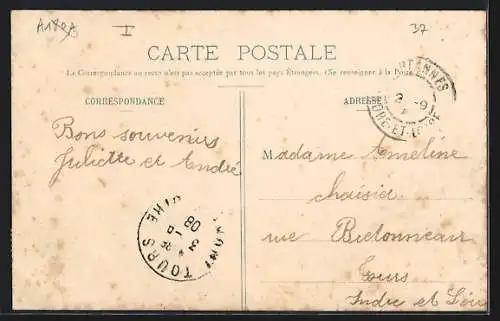 37
I
CARTE POSTALE
La Correspondance au recto n'est pas acceptée par tous les pays Étrangers. (Se renseigner à la Poste)
CORRESPONDANCE
ADRESSE
Bons souvenirs
Juliette et André
Madame Ameline
rue Bretonneau
Tours
Indre et Loire
TOURS